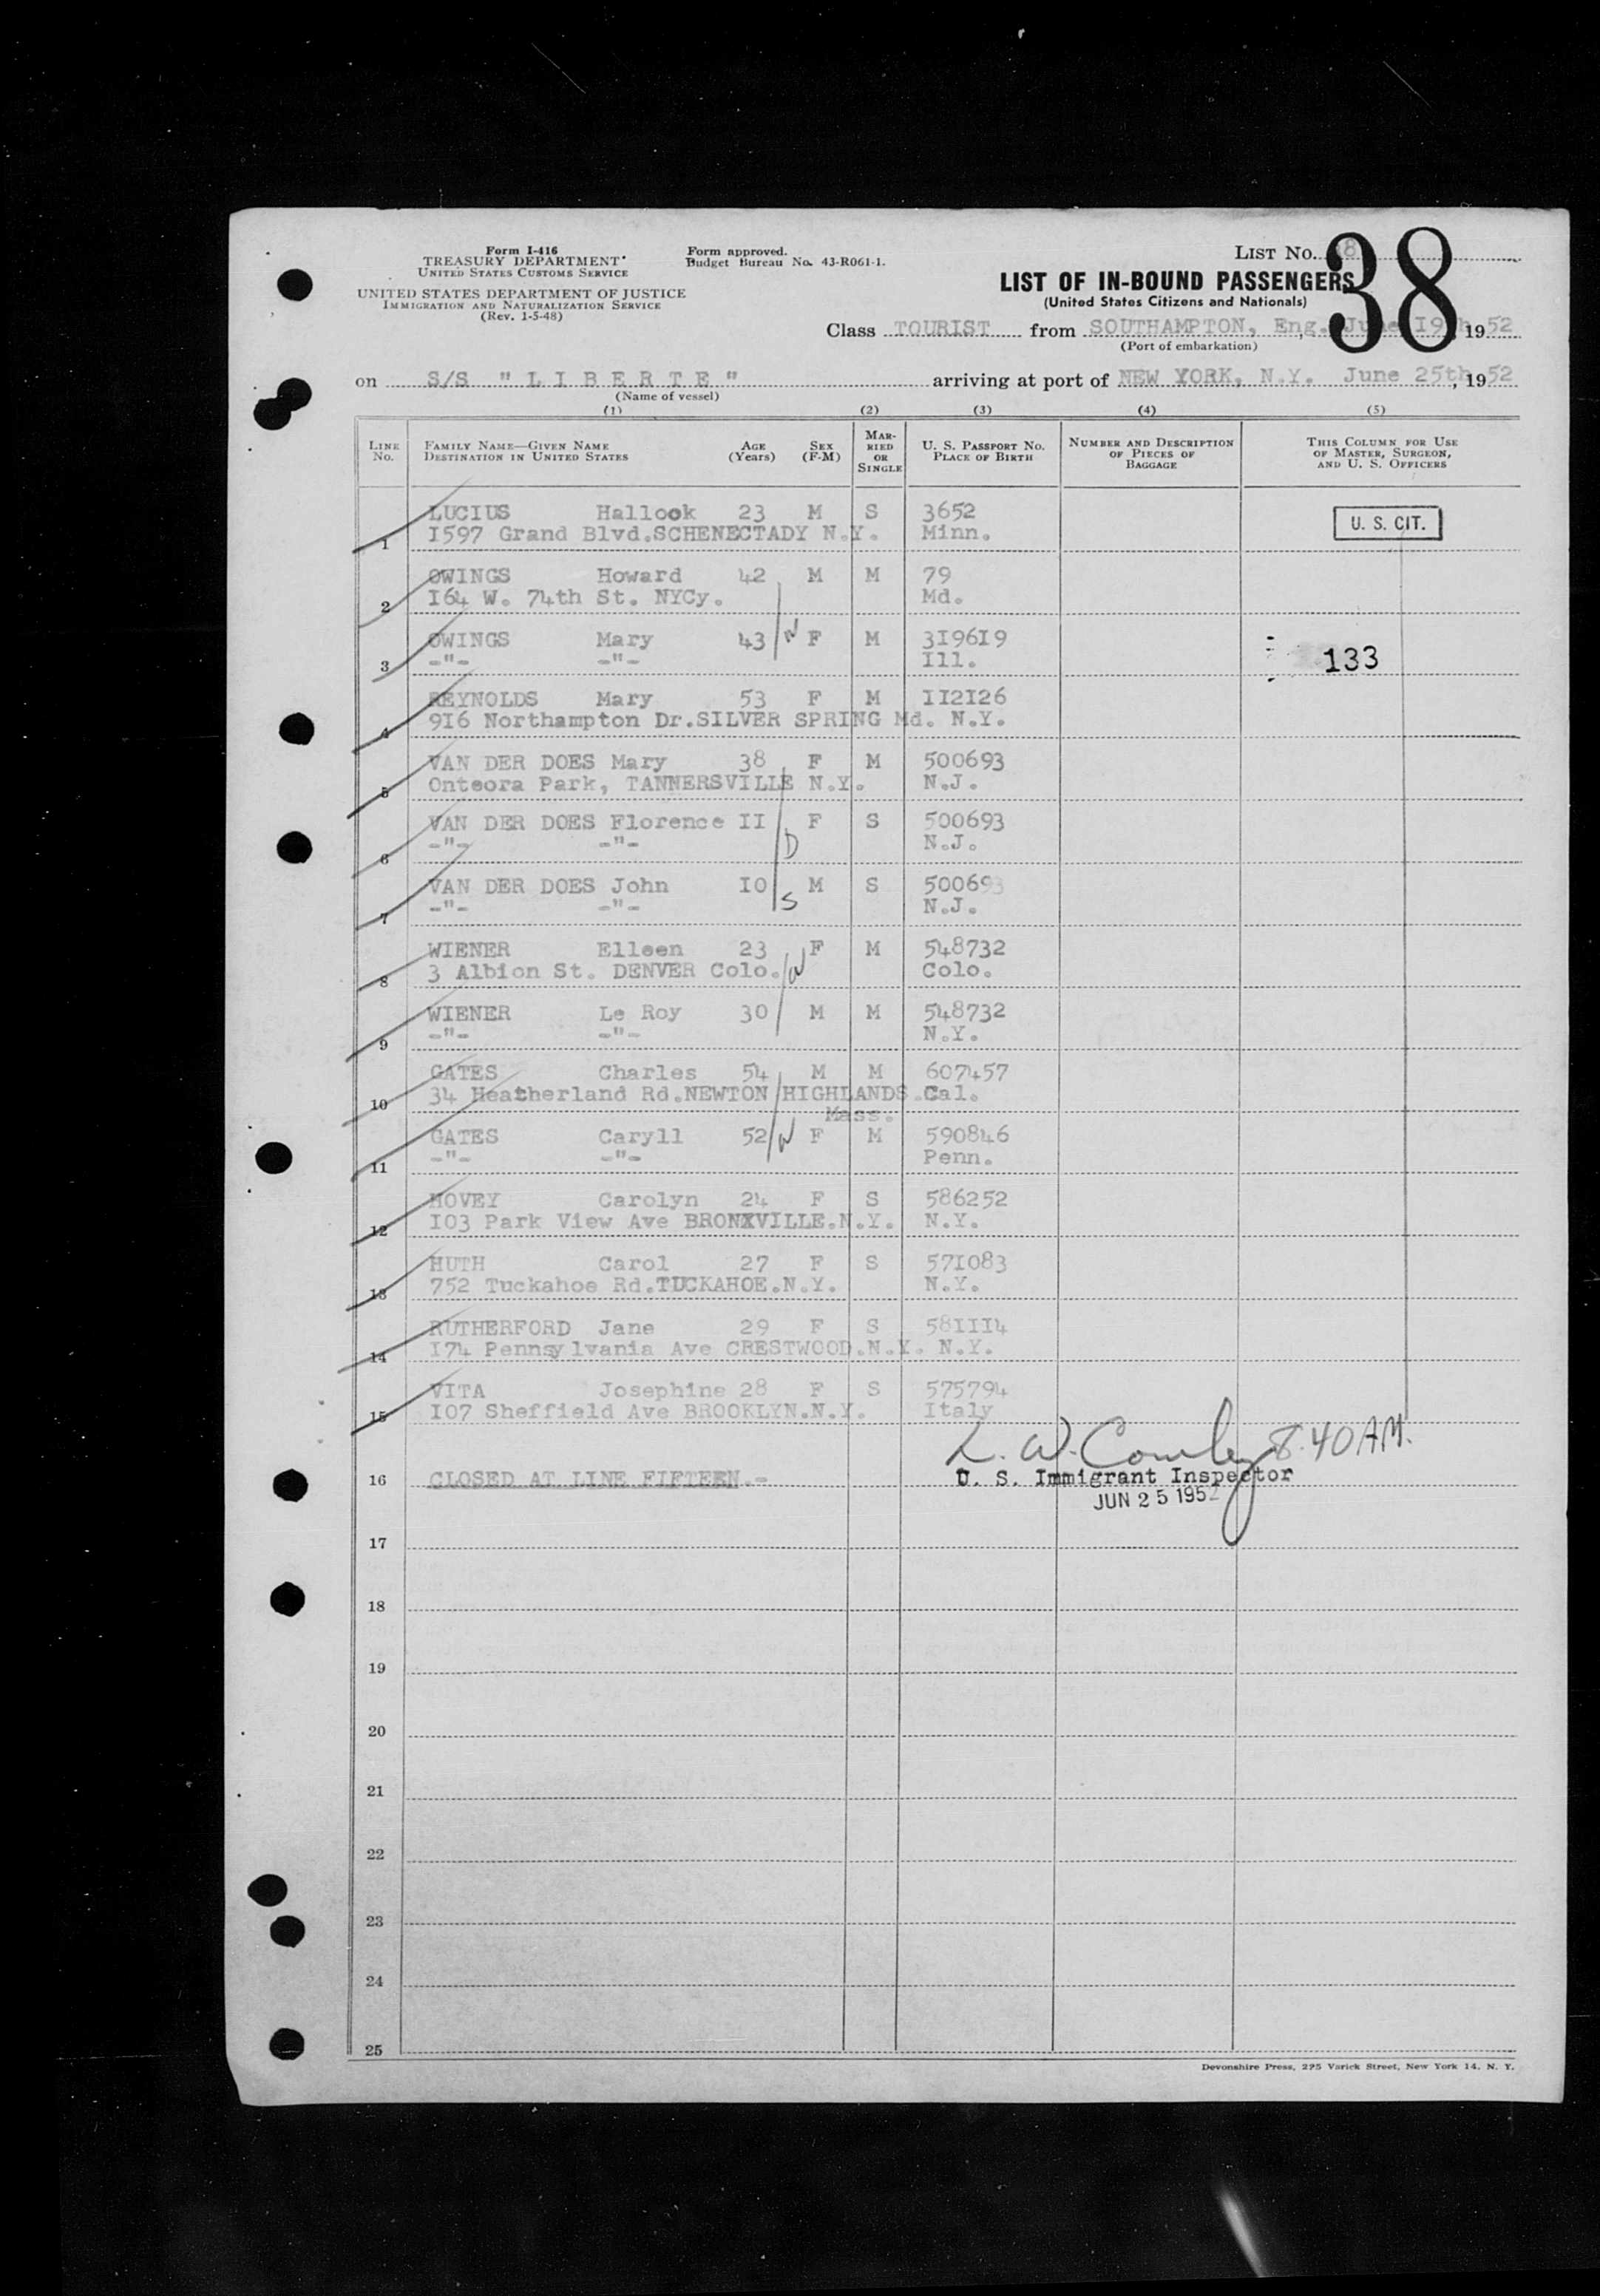 Form I-416
TREASURY DEPARTMENT
UNITED STATES CUSTOMS SERVICE
UNITED STATES DEPARTMENT OF JUSTICE
IMMIGRATION AND NATURALIZATION SERVICE
(Rev. 1-5-48)
Form approved.
Budget Bureau No. 43-R061-1.
LIST No. 38
LIST OF IN-BOUND PASSENGERS
(United States Citizens and Nationals)
Class TOURIST from SOUTHAMPTON, Eng. June I9th, 1952
(Port of embarkation)
on S/S " L I B E R T E " arriving at port of NEW YORK, N.Y. June 25th, 1952
(Name of vessel)
(1) (2) (3) (4) (5)
LINE No. FAMILY NAME—GIVEN NAME DESTINATION IN UNITED STATES AGE (Years) SEX (F-M) MARRIED OR SINGLE U. S. PASSPORT No. PLACE OF BIRTH NUMBER AND DESCRIPTION OF PIECES OF BAGGAGE THIS COLUMN FOR USE OF MASTER, SURGEON, AND U. S. OFFICERS
LUCIUS Hallock 23 M S 3652 U. S. CIT.
1 I597 Grand Blvd.SCHENECTADY N.Y. Minn.
OWINGS Howard 42 M M 79
2 I64 W. 74th St. NYCy. Md.
OWINGS Mary 43 W F M 3I96I9
3 -"- -"- Ill. 133
REYNOLDS Mary 53 F M II2I26
4 9I6 Northampton Dr.SILVER SPRING Md. N.Y.
VAN DER DOES Mary 38 F M 500693
5 Onteora Park, TANNERSVILLE N.Y. N.J.
VAN DER DOES Florence II F S 500693
6 -"- -"- D N.J.
VAN DER DOES John IO M S 500693
7 -"- -"- S N.J.
WIENER Elleen 23 F M 548732
8 3 Albion St. DENVER Colo. W Colo.
WIENER Le Roy 30 M M 548732
9 -"- -"- N.Y.
GATES Charles 54 M M 607457
10 34 Heatherland Rd.NEWTON HIGHLANDS. Cal.
Mass.
GATES Caryll 52 W F M 590846
11 -"- -"- Penn.
HOVEY Carolyn 24 F S 586252
12 I03 Park View Ave BRONXVILLE.N.Y. N.Y.
HUTH Carol 27 F S 57I083
13 752 Tuckahoe Rd.TUCKAHOE.N.Y. N.Y.
RUTHERFORD Jane 29 F S 58III4
14 I74 Pennsylvania Ave CRESTWOOD.N.Y. N.Y.
VITA Josephine 28 F S 575794
15 I07 Sheffield Ave BROOKLYN.N.Y. Italy
L. W. Conley 8.40 AM.
16 CLOSED AT LINE FIFTEEN.- U. S. Immigrant Inspector
JUN 25 1952
17
18
19
20
21
22
23
24
25
Devonshire Press, 295 Varick Street, New York 14, N. Y.